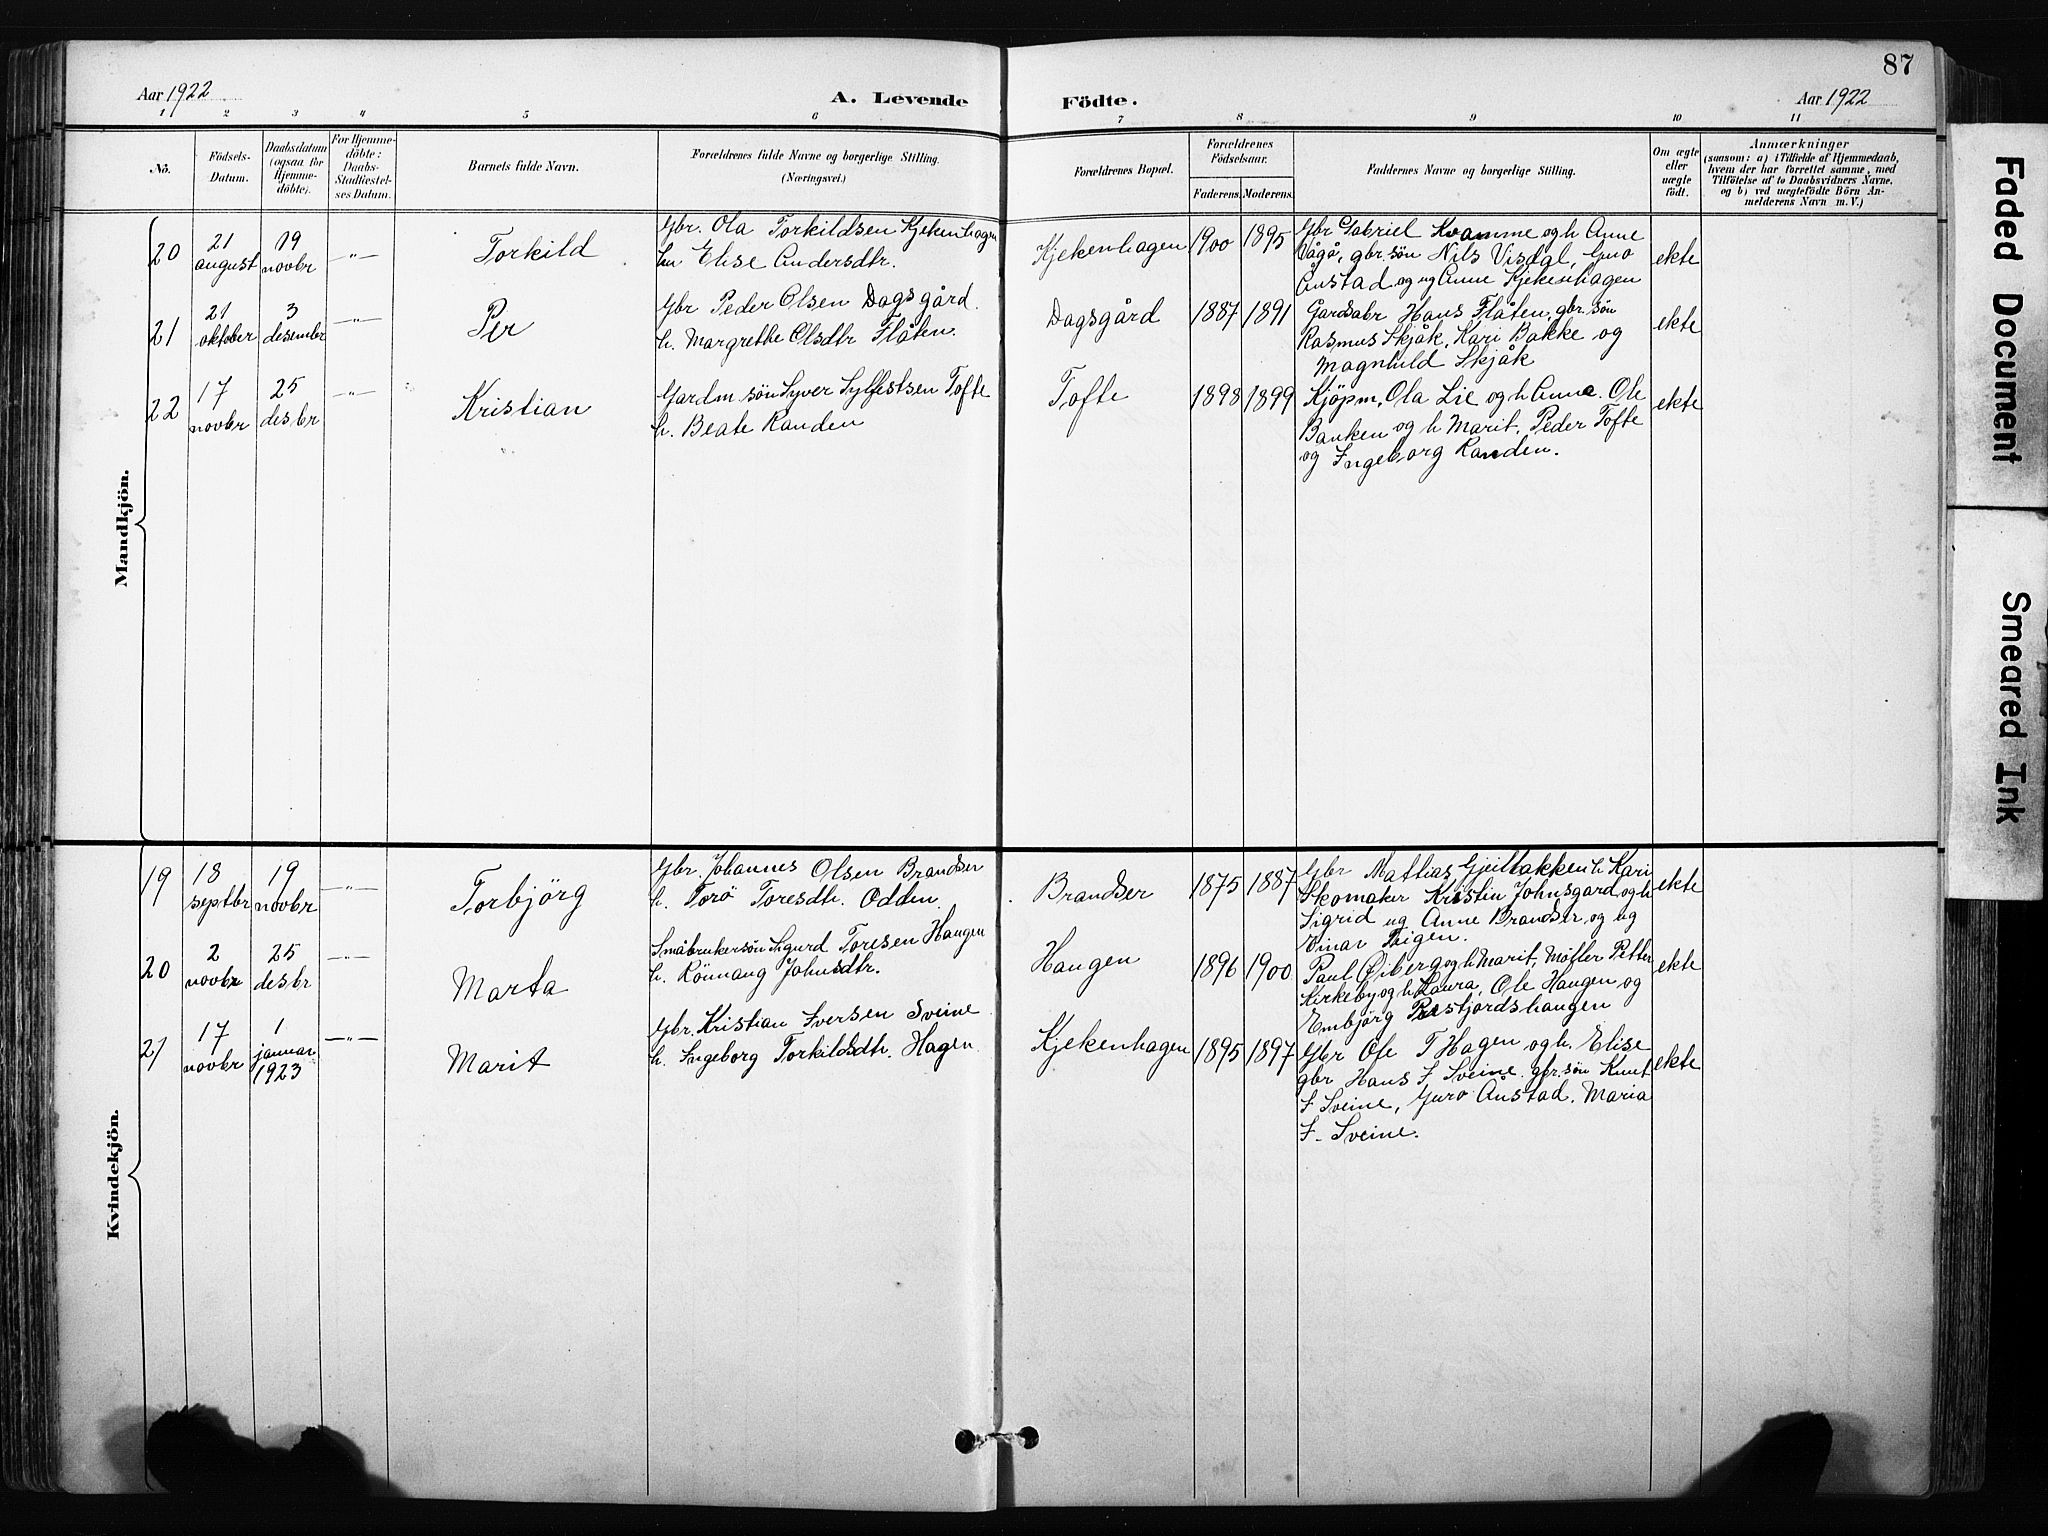 87
Aar 1922
A. Levende Födte.
Aar 1922
1 2 3 4 5 6 7 8 9 10 11
No.
Födsels-
Datum.
Daabsdatum
(ogsaa for
Hjemme-
döbte).
For Hjemme-
döbte:
Daabs-
Stadfæstel-
ses Datum.
Barnets fulde Navn.
Forældrenes fulde Navne og borgerlige Stilling.
(Næringsvei.)
Forældrenes Bopæl.
Forældrenes
Födselsaar.
Faderens. Moderens.
Faddernes Navne og borgerlige Stilling.
Om ægte
eller
uægte
födt.
Anmærkninger
(saasom: a) i Tilfælde af Hjemmedaab,
hvem der har forrettet samme, med
Tilföielse af to Daabsvidners Navne,
og b) ved uægtefödte Börn An-
melderens Navn m. V.)
Mandkjön.
20
21
august
19
novbr
—"—
Torkild
Gbr. Ola Torkildsen Kjekenhagen
hu Elise Andersdtr.
Kjekenhagen
1900
1895
Gbr Gabriel Kvamme og h Anne
Vågå, gbr.søn Nils Visdal, Guro
Anstad og ug Anne Kjekenhagen
ekte
21
21
oktober
3
desember
—"—
Per
Gbr Peder Olsen Dagsgård
h. Margrethe Olsdtr Flåten.
Dagsgård
1887
1891
Gardsabr Hans Flåten, gbr.søn
Rasmus Skjåk, Kari Bakke og
Magnhild Skjåk
ekte
22
17
novbr
25
desbr
—"—
Kristian
Gardm.søn Syver Sylfestsen Tofte
h. Beate Randen
Tofte
1898
1899
Kjøpm. Ola Lie og h Anne. Ole
Banken og h Marit, Peder Tofte
og Ingeborg Randen.
ekte
Kvindekjön.
19
18
septbr
19
novbr
—"—
Torbjörg
Gbr. Johannes Olsen Brandser
h. Torö Toresdtr. Odden.
Brandser
1875
1887
Gbr Mattias Gjeilbakken h Kari
Skomaker Kristin Johnsgard og h
Sigrid ug Anne Brandser og ug
Einar Teigen.
ekte
20
2
novbr
25
desbr
—"—
Marta
Småbrukersön Sigurd Toresen Haugen
h. Rönnaug Johnsdtr.
Haugen
1896
1900
Paul Øiberg og h Marit, Møller Petter
Kirkeby og h Laura, Ole Haugen og
Embjörg Prestjordshaugen
ekte
21
17
novbr
1
januar
1923
—"—
Marit
Gbr. Kristian Iversen Sveine
h. Ingeborg Torkildsdtr. Hagen
Kjekenhagen
1895
1897
Gbr Ole T Hagen og h. Elise
gbr Hans I Sveine gbr.søn Knut
I Sveine, Guro Anstad. Maria
I. Sveine.
ekte
Faded Document
Smeared Ink